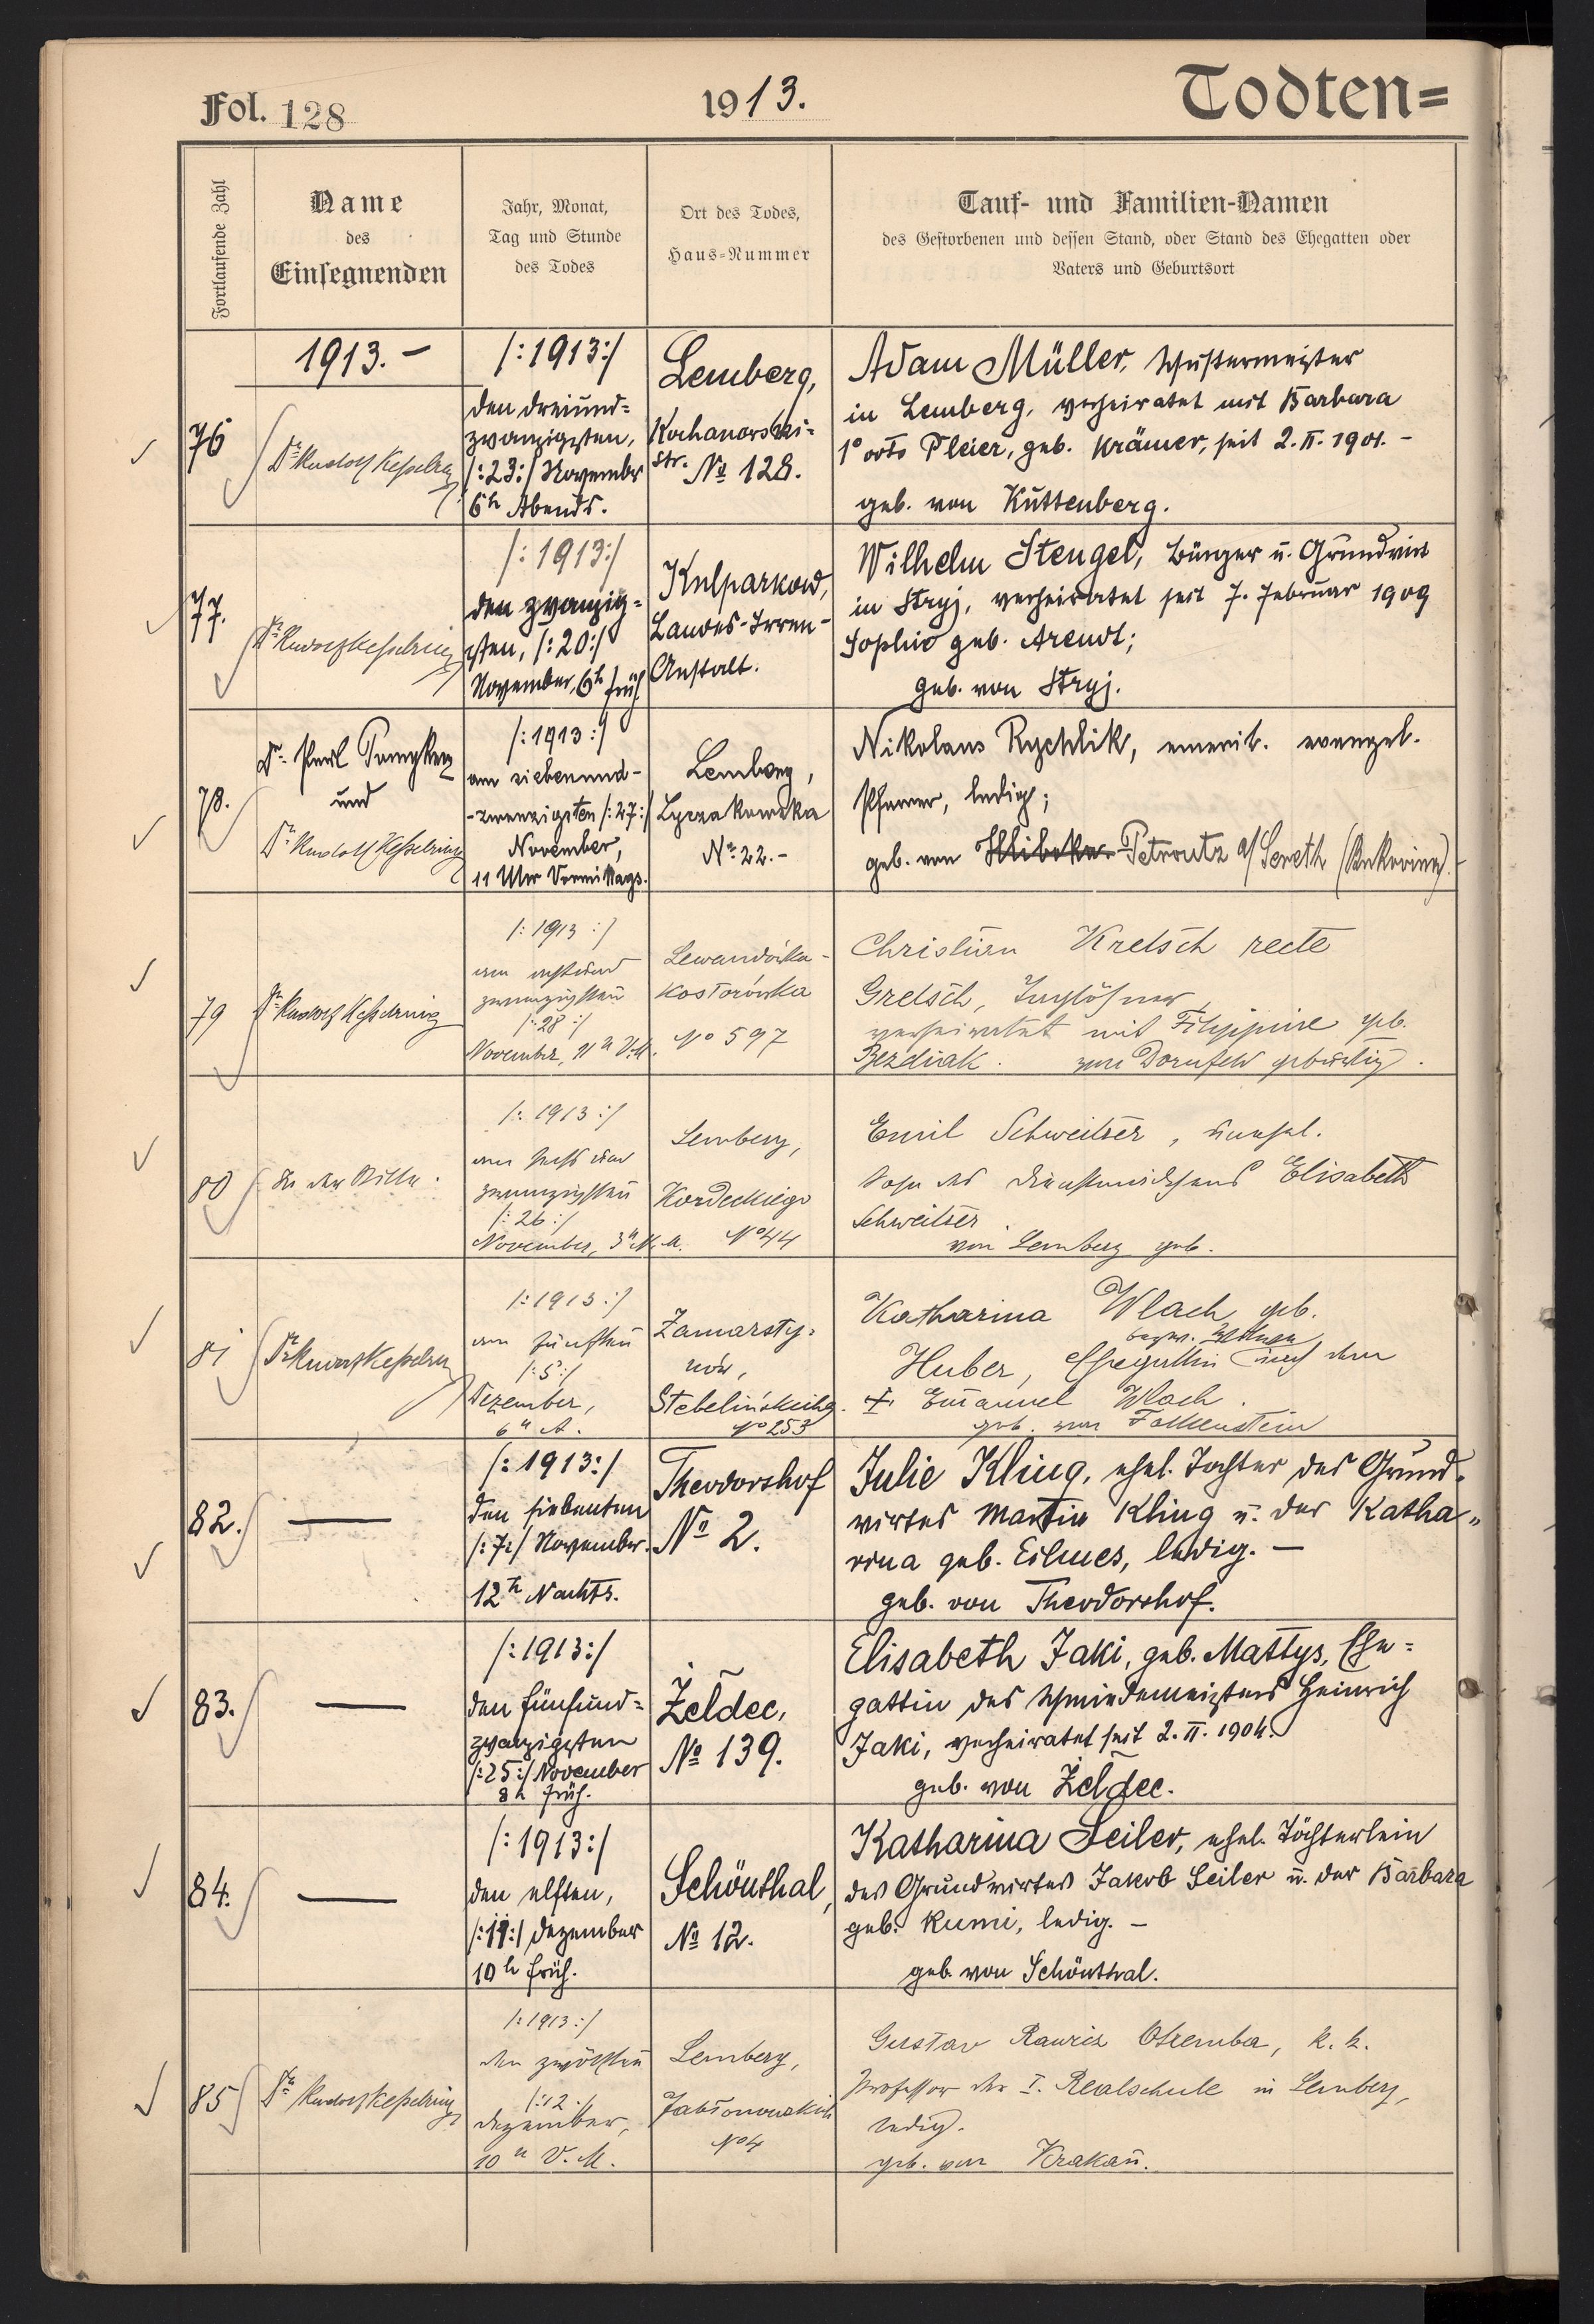 Fol. 128
1913.
Todten=
Fortlaufende Zahl
Name
des
Einsegnenden
Jahr, Monat,
Tag und Stunde
des Todes
Ort des Todes,
Haus-Nummer
Tauf- und Familien-Namen
des Gestorbenen und dessen Stand, oder Stand des Ehegatten oder
Vaters und Geburtsort
1913.-
76
Dr. Rudolf Kesselring
/:1913:/
den dreiund=
zwanzigsten,
/:23:/ November
6h Abends.
Lemberg,
Kochanowski=
str. No 128.
Adam Müller, Schustermeister
in Lemberg, verheiratet mit Barbara
1o voto Pleier, geb. Krämer, seit 2. II. 1901.-
geb. von Kuttenberg.
77.
Dr. Rudolf Kesselring
/:1913:/
den zwanzig=
sten, /:20:/
November, 6h früh
Kulparkow,
Landes-Irren-
Anstalt.
Wilhelm Stengel, Bürger u. Grundwirt
in Stryj, verheiratet seit 7. Februar 1909
Sophie geb. Arendt;
geb. von Stryj.
78.
Dr. Paul
und
Dr. Rudolf Kesselring
/:1913:/
am siebenund-
-zwanzigsten /:27:/
November,
11 Uhr Vormittags.
Lemberg,
Lyczakowska
No 22.-
Nikolaus Rychlik, emerit. evangel.
Pfarrer, ledig;
geb. von Hliboka Petroutz a/Sereth (Bukovina).
79
Dr. Rudolf Kesselring
/:1913:/
am achtund
zwanzigsten
/:28:/
November, 11h V.M.
Lewandówka-
Kostorówka
No 597
Christian Kretsch recte
Gretsch, Taglöhner,
verheiratet mit Filippine geb.
Bezdiak. von Dornfeld gebürtig.
80
In der Stille.
/:1913:/
am sechsund
zwanzigsten
/:26:/
November, 3h N.M.
Lemberg,
Kordeckiego
No 44
Emil Schweitzer, unehel.
Sohn des Dienstmädchens Elisabeth
Schweitzer.
von Lemberg geb.
81
Dr. Rudolf Kesselring
/:1913:/
am fünften
/:5:/
Dezember,
6h A.
Zamarsty=
nów,
No 253
Katharina Wlach geb.
bezw. Witwe
Huber, Ehegattin nach dem
† Emanuel Wlach.
geb. von Falkenstein
82.
—
/:1913:/
den siebenten
/:7:/ November.
12h Nachts.
Theodorshof
No 2.
Julie Kling, ehel. Tochter des Grund-
wirtes Martin Kling u. der Katha„
rina geb. Eilmes, ledig. —
geb. von Theodorshof.
83.
—
/:1913:/
den fünfund=
zwanzigsten
/:25:/ November
8h früh.
Żeldec,
No 139.
Elisabeth Jaki, geb. Mattys, Ehe=
gattin des Schmiedemeisters Heinrich
Jaki, verheiratet seit 2. II. 1904.
geb. von Żeldec.
84.
—
/:1913:/
den elften,
/:11:/ Dezember
10h früh.
Schönthal,
No 12.
Katharina Seiler, ehel. Töchterlein
des Grundwirtes Jakob Seiler u. der Barbara
geb. Kumi, ledig. —
geb. von Schönthal.
85
Dr. Rudolf Kesselring
/:1913:/
den zwölften
/:12:/
Dezember,
10h V.M.
Lemberg,
Jabłonowskich
No 4
Gustav Otremba, k. k.
Professor der I. Realschule in Lemberg,
ledig.
geb. von Krakau.